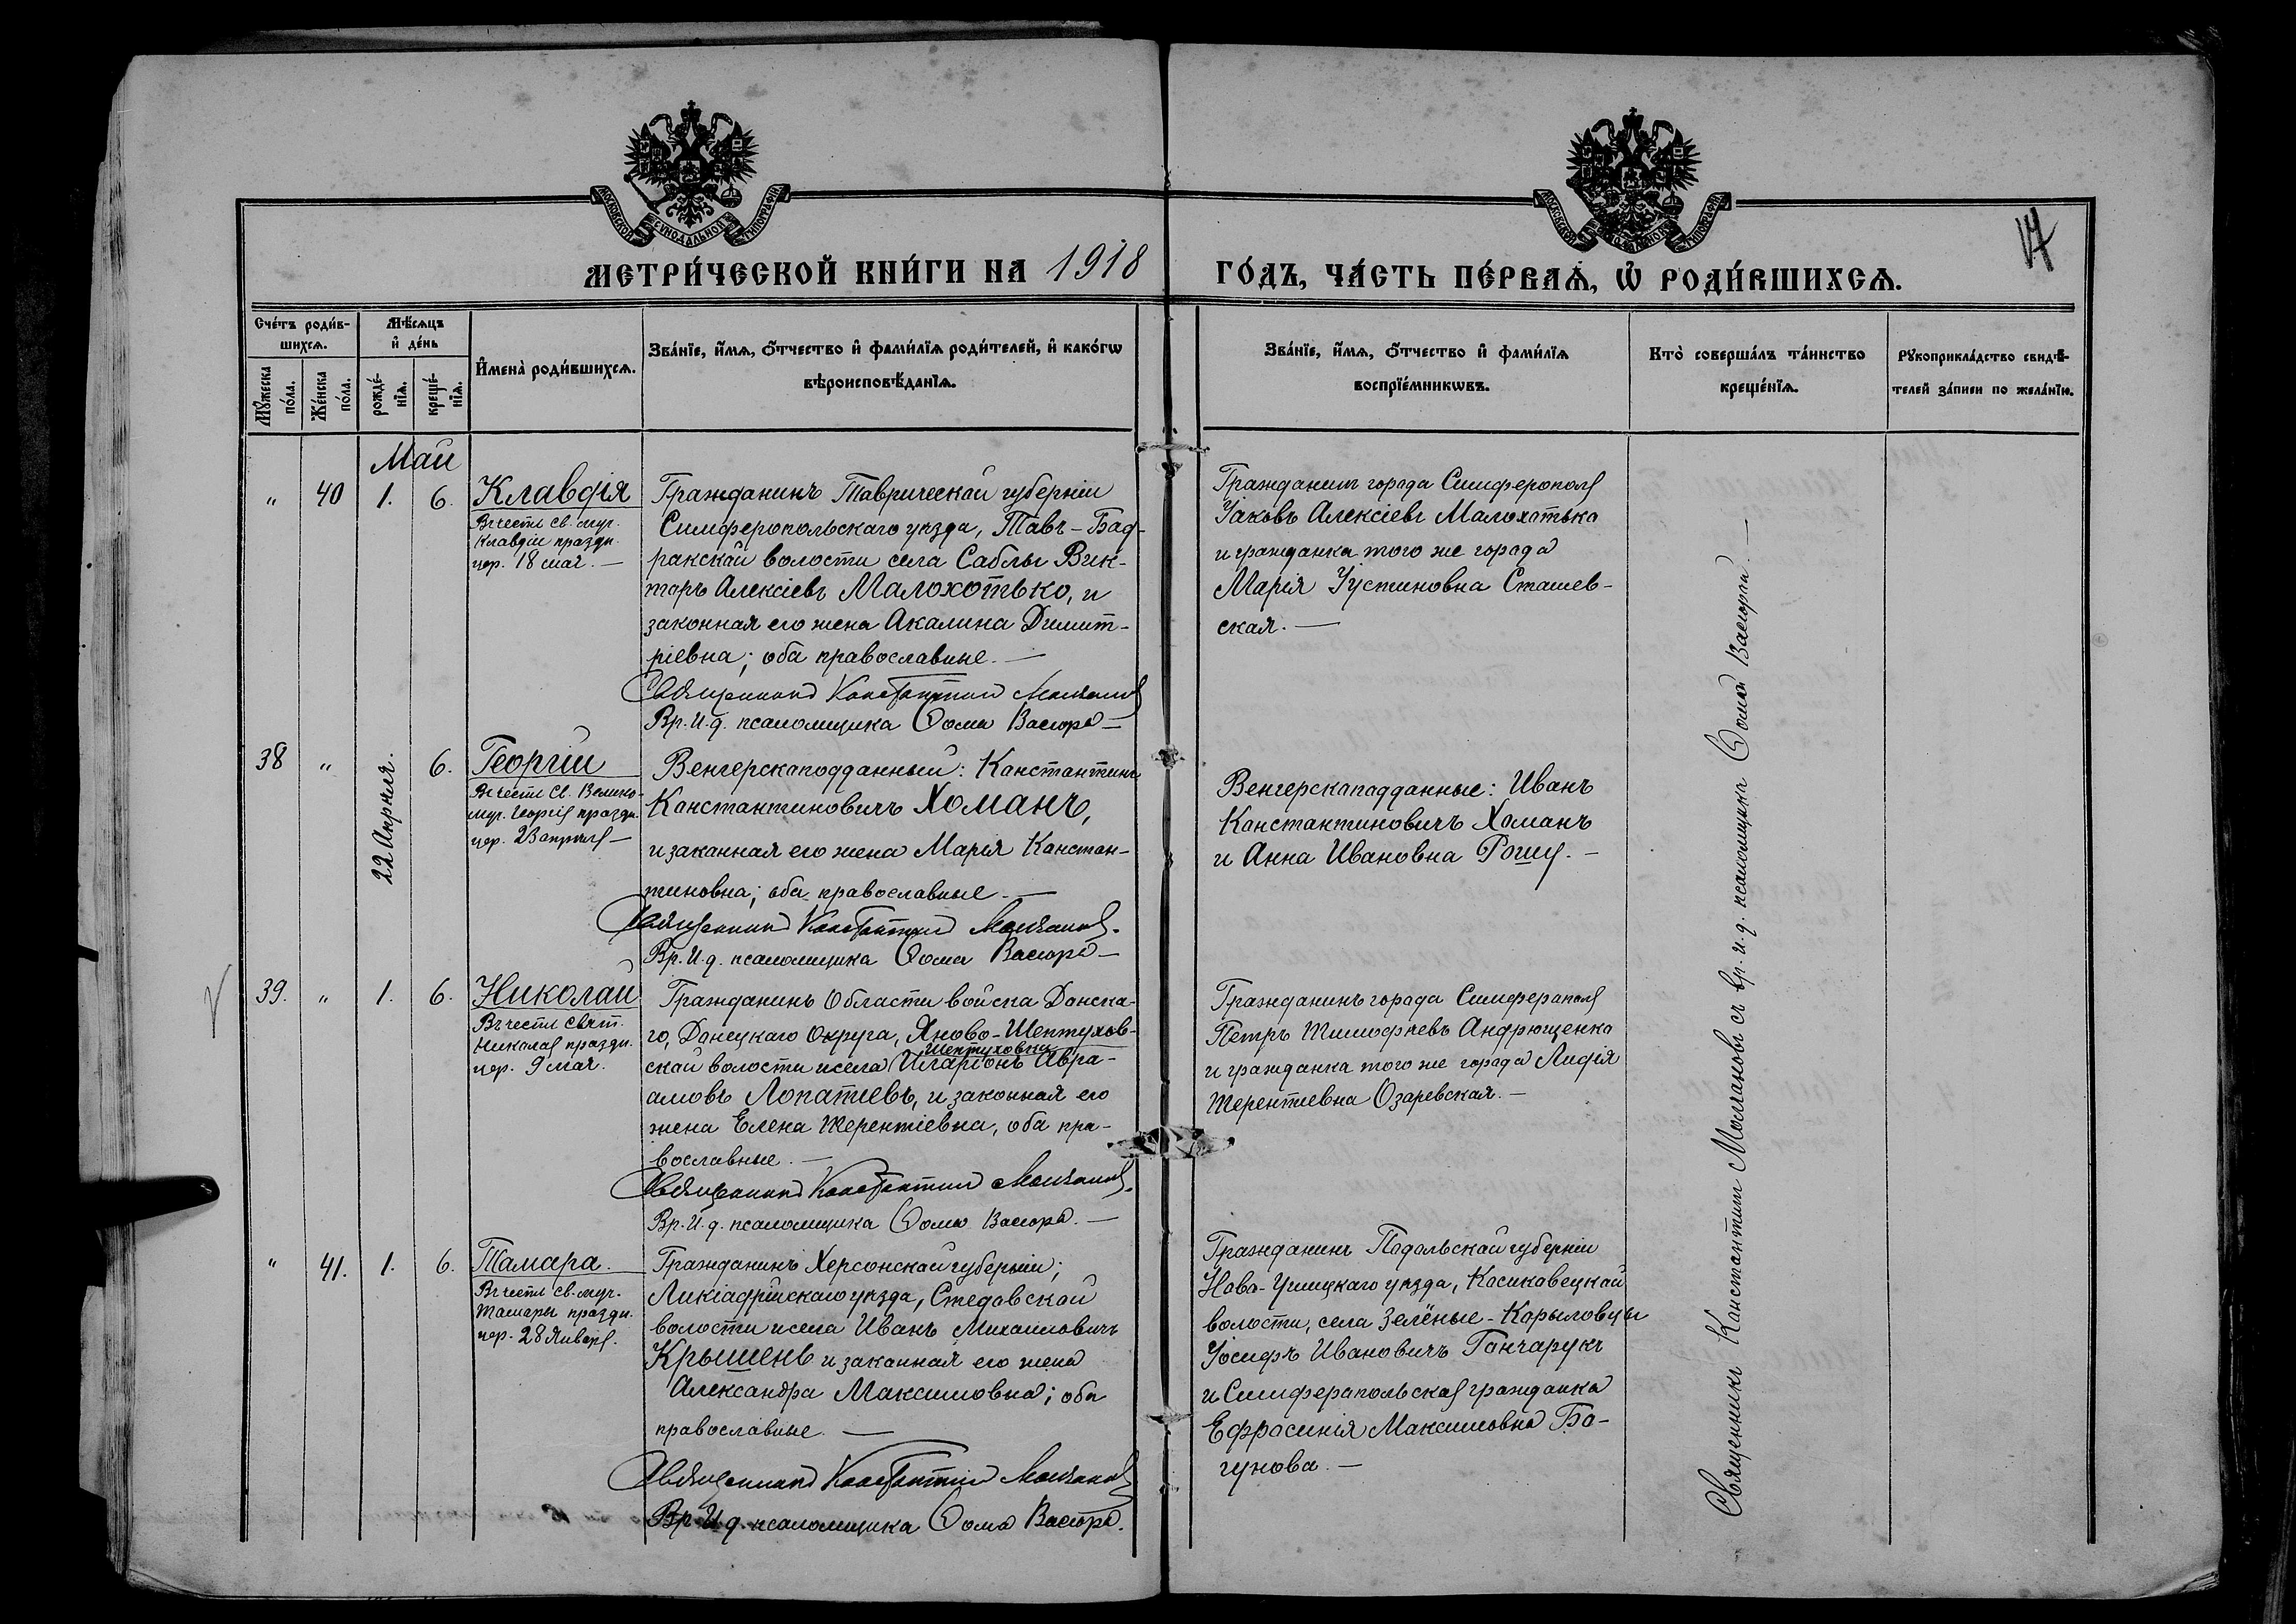 МОСКОВСКОЙ СѴНОДАЛЬНОЙ ТИПОГРАФІИ
МОСКОВСКОЙ СѴНОДАЛЬНОЙ ТИПОГРАФІИ
17
МЕТРИ́ЧЕСКОЙ КНИ́ГИ НА 1918
ГО́ДЪ, ЧА́СТЬ ПЕ́РВАѦ, Ѡ҆ РОДИ́ВШИХСѦ.
Сче́тъ роди́в-
шихсѧ.
Мꙋ́жеска
по́ла.
Же́нска
по́ла.
Мѣ́сѧцъ
и҆ де́нь
рожде́-
нїѧ.
креще́-
нїѧ.
И҆мена̀ роди́вшихсѧ.
Зва́нїе, и҆́мѧ, ѻ҆́тчество и҆ фами́лїѧ роди́телей, и҆ како́гѡ
вѣроисповѣ́данїѧ.
Зва́нїе, и҆́мѧ, ѻ҆́тчество и҆ фами́лїѧ
воспрїе́мникѡвъ.
Кто̀ соверша́лъ та́инство
креще́нїѧ.
Рꙋкоприкла́дство свидѣ́-
телей за́писи по жела́нїю.
Май
" 40 1. 6.
Клавдія
Въ честь св. муч.
Клавдіи праздн.
цер. 18 мая. —
Гражданинъ Таврической губерніи
Симферопольскаго уѣзда, Тавъ-Бад-
ракской волости села Саблы Вик-
торъ Алексіевъ Малохотько, и
законная его жена Акалина Димит-
ріевна; оба православные. —
Священникъ Константинъ Молчановъ
Вр. И. д. псаломщика Ѳома Васюра —
Гражданинъ города Симферополя
Іаковъ Алексіевъ Малохатька
и гражданка того же города
Марія Іустиновна Сташев-
ская. —
38 " 22 Апрѣля. 6.
Георгій
Въ честь Св. Велико-
муч. Георгія праздн.
цер. 23 апрѣля —
Венгерскаподданный: Канстантинъ
Канстантиновичъ Хоманъ,
и заканная его жена Марія Канстан-
тиновна; оба православные —
Священникъ Константинъ Молчановъ.
Вр. И. д. псаломщика Ѳома Васюра —
Венгерскаподданные: Иванъ
Канстантиновичъ Хаманъ
и Анна Ивановна Рошу. —
39. " 1. 6.
Николай
Въ честь Свят.
Николая праздн.
цер. 9 мая.
Гражданинъ Области войска Данска-
го, Данецкаго Округа, Яново-Шептухов-
Шептуховки
ской волости и села Иларіонъ Авра-
амовъ Лопатіевъ, и законная его
жена Елена Терентіевна, оба пра-
вославные. —
Священникъ Константинъ Молчановъ.
Вр. И. д. псаломщика Ѳома Васюра. —
Гражданинъ города Симферополя
Петръ Тимофѣевъ Андрющенка
и гражданка того же города Лидія
Терентіевна Озаревская. —
" 41. 1. 6.
Тамара.
Въ честь св. муч.
Тамары праздн.
цер. 28 Января.
Гражданинъ Херсонской губерніи;
волости и села Иванъ Михаиловичъ
Крышень и заканная его жена
Александра Максимовна; оба
православные. —
Священникъ Константинъ Молчановъ
Вр. И. д. псаломщика Ѳома Васюра.
Гражданинъ Падольской губерніи
Нова-Ушицкаго уѣзда, Косиковецкой
волости, села Зелёные-Карыловцы
Іосифъ Ивановичъ Ганчарукъ
и Симферопольская гражданка
Ефрасинія Максимовна Ба-
гунова. —
Священникъ Канстантинъ Молчановъ съ вр. и. д. псаломщика Ѳомой Васюрой. —